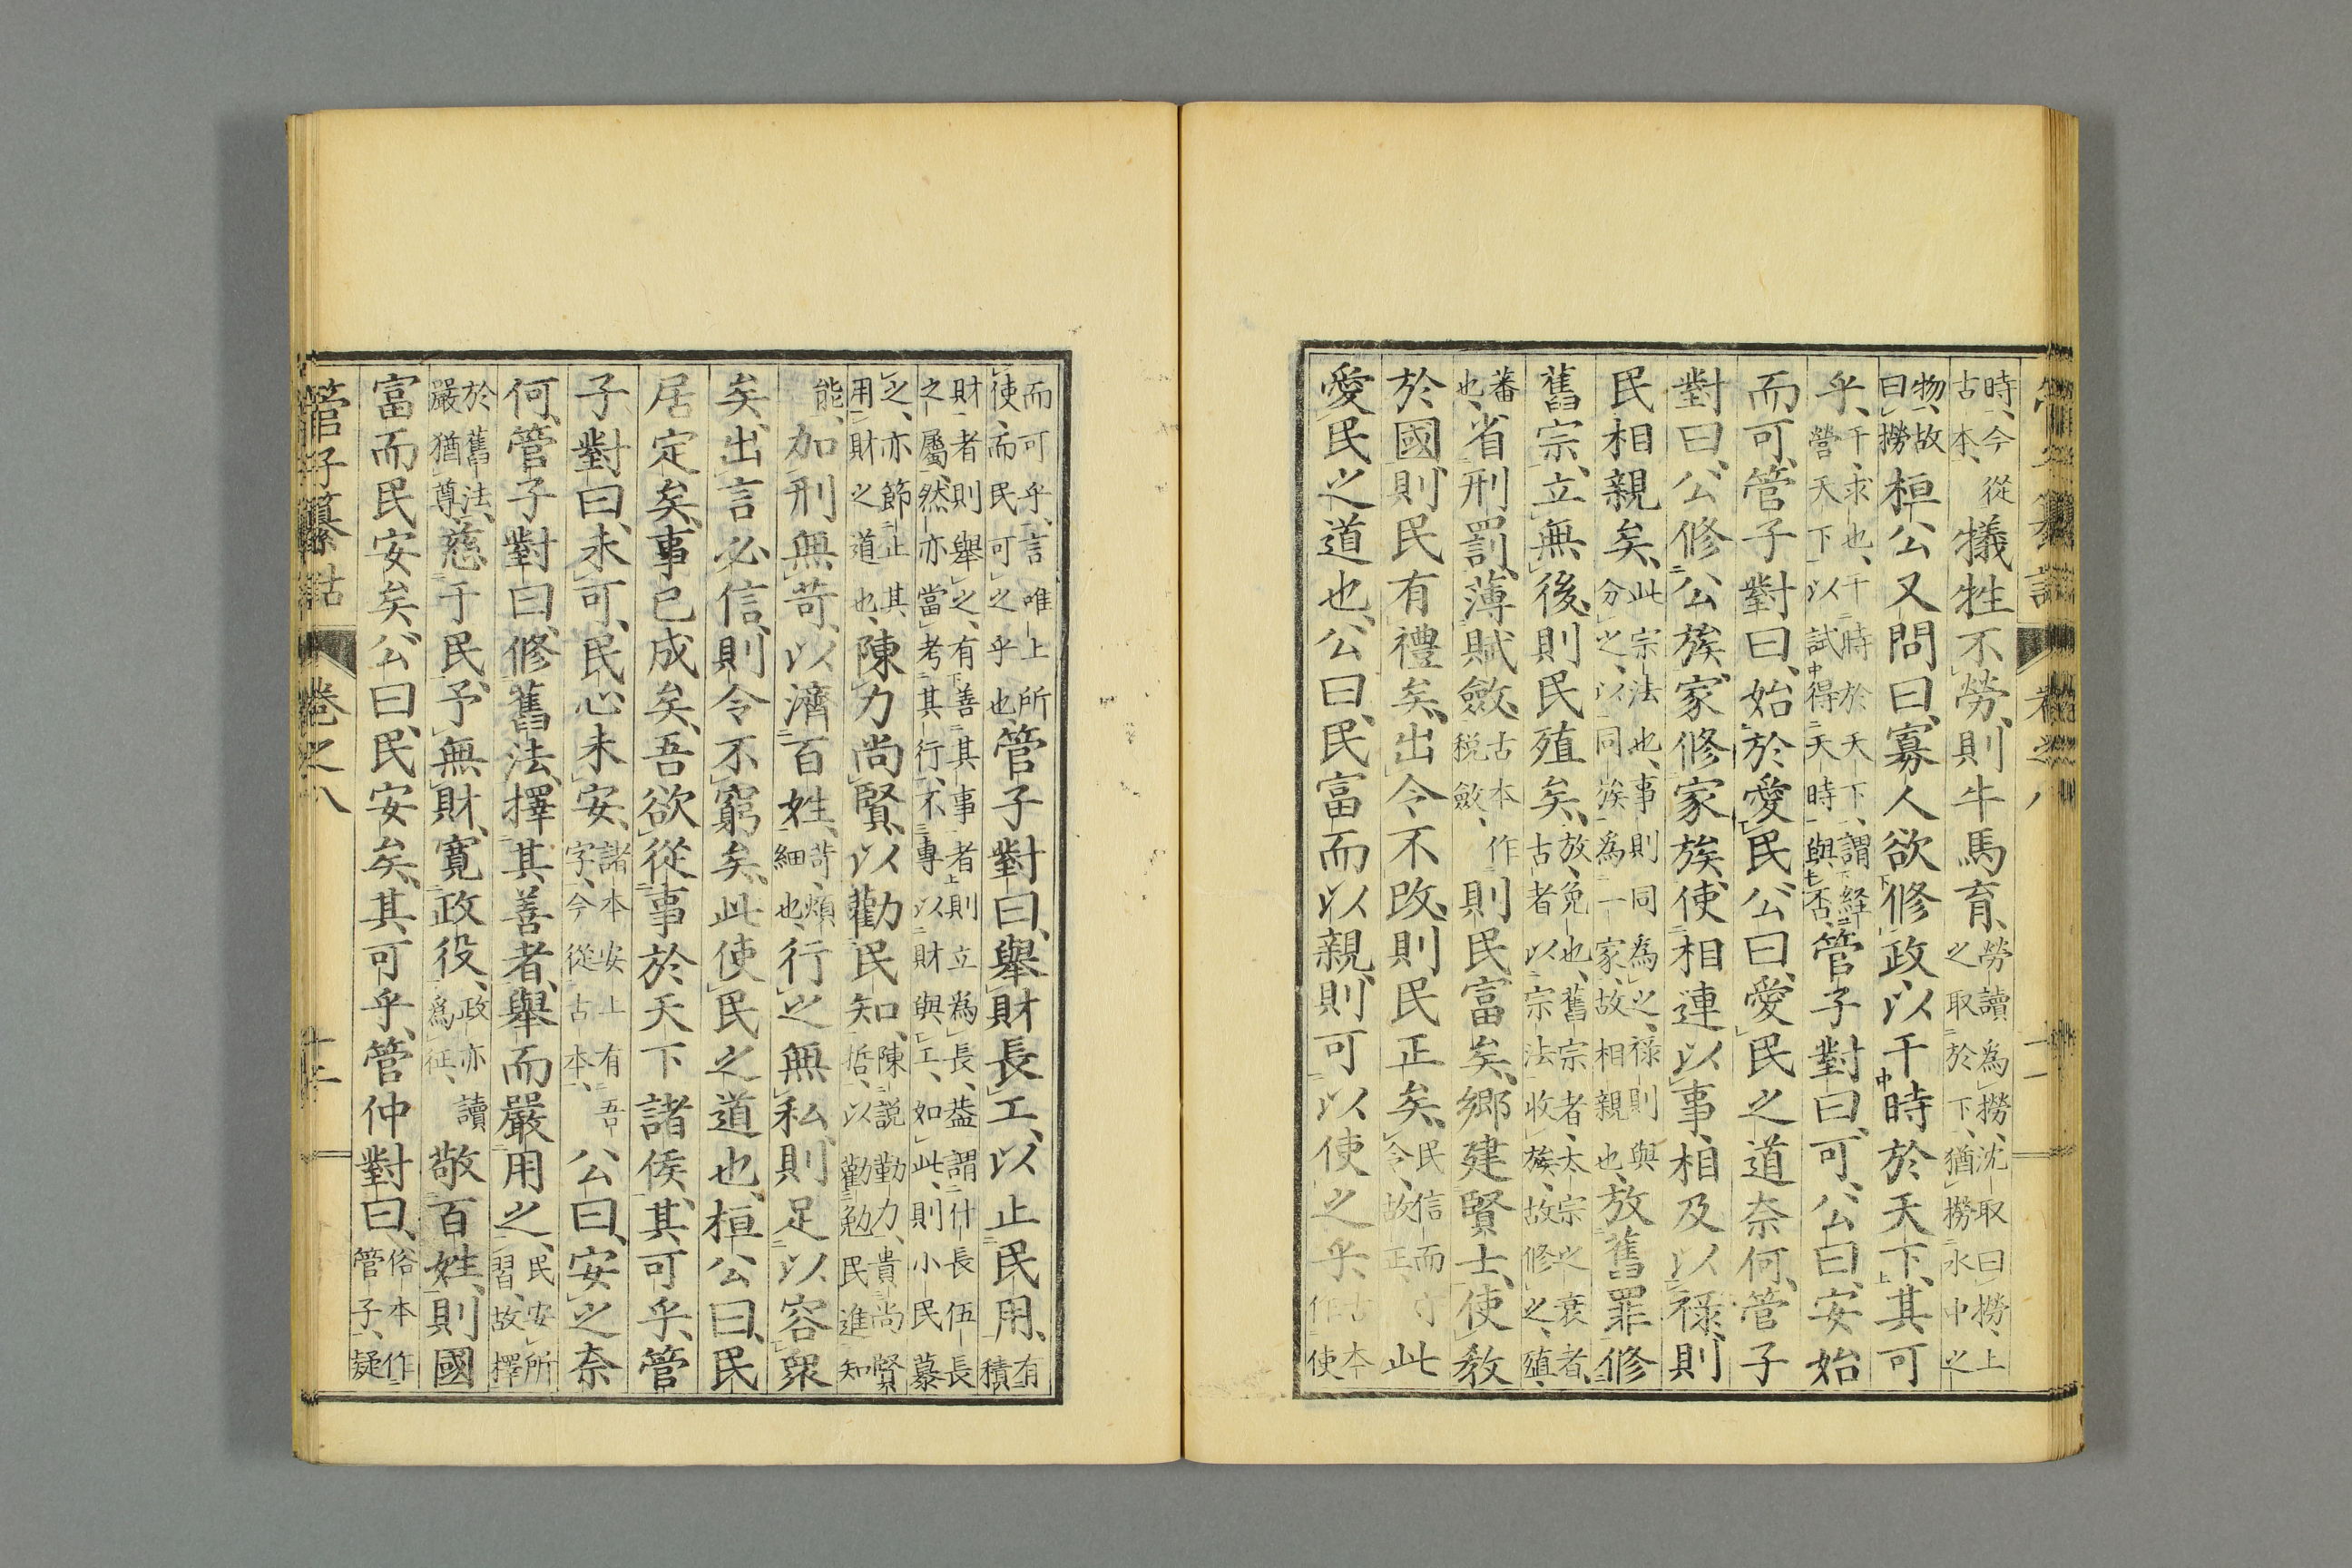 管子纂詁 卷之八 十一
時、今從古本、犧牲不勞、則牛馬育、勞讀為撈、沈取曰撈、上之取於下、猶撈水中之
物、故曰撈桓公又問曰、寡人欲修政、以干時於天下、其可
乎、干、求也、干時於天下、謂經營天下、以試得天時與否、管子對曰、可、公曰、安始
而可、管子對曰、始於愛民、公曰、愛民之道奈何、管子
對曰、公修公族、家修家族、使相連以事、相及以祿、則
民相親矣、此宗法也、事則同為之、祿則與分之、以同族為一家、故相親也、放舊罪、修
舊宗、立無後、則民殖矣、放、免也、舊宗者、太宗之衰者、古者以宗法收族、故修之、殖、
蕃也、省刑罰、薄賦斂、古本作稅斂、則民富矣、鄉建賢士、使教
於國、則民有禮矣、出令不改、則民正矣、民信而守令、故正、此
愛民之道也、公曰、民富而以親、則可以使之乎、古本作使
而可乎、言唯上所使、而民可之乎也、管子對曰、舉財長工、以止民用、有積
財者則舉之、有善其事者則立為長、蓋謂什長伍長之屬、然亦當考其行、不專以財與工、如此、則小民慕
之、亦節止其用財之道也、陳力尚賢、以勸民知、陳說勤力、貴尚賢哲、以勸勉民進知
能、加刑無苛、以濟百姓、苛、煩細也、行之無私、則足以容衆
矣、出言必信、則令不窮矣、此使民之道也、桓公曰、民
居定矣、事已成矣、吾欲從事於天下諸侯、其可乎、管
子對曰、未可、民心未安、諸本安上有吾字、今從古本、公曰、安之奈
何、管子對曰、修舊法、擇其善者、舉而嚴用之、民安所習、故擇
於舊法、嚴猶尊、慈于民、予無財、寬政役、政亦讀為征、敬百姓、則國
富而民安矣、公曰、民安矣、其可乎、管仲對曰、俗本作管子、疑
管子纂詁 卷之八 十二